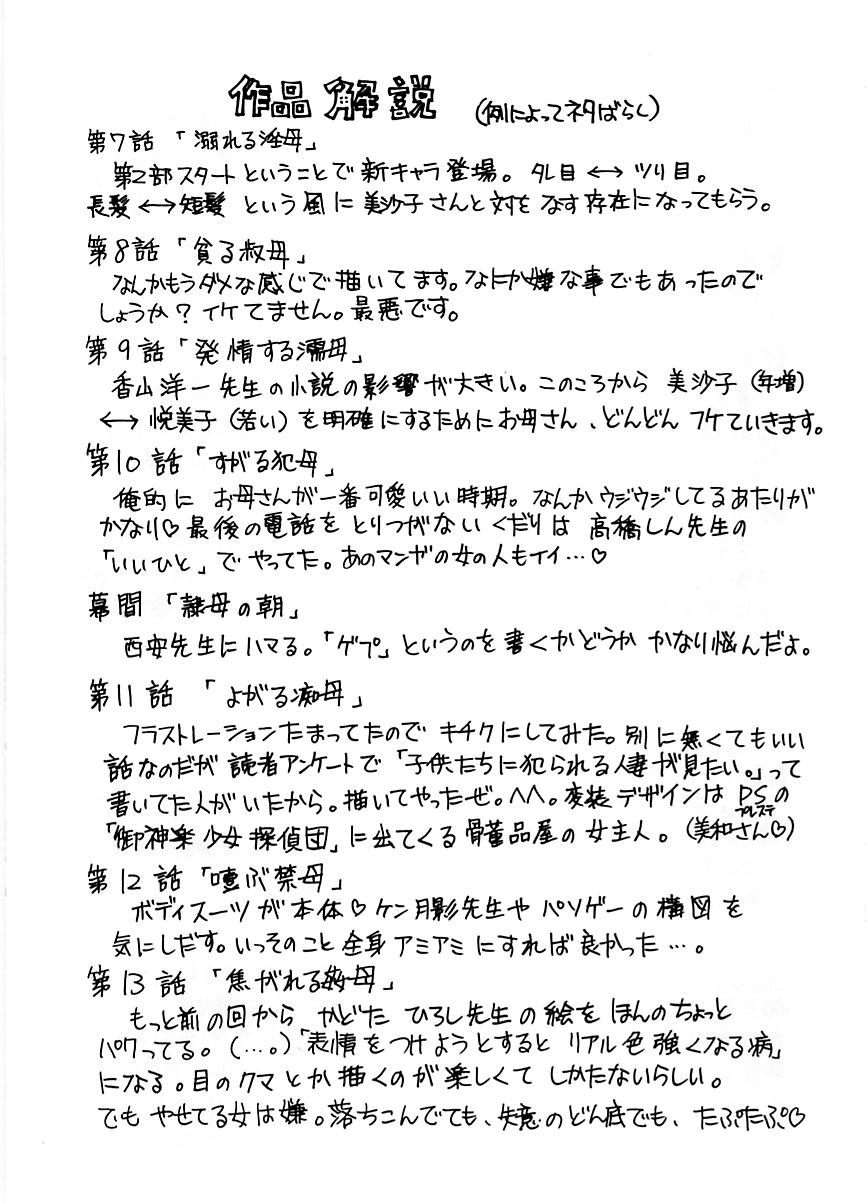 作品解説 (例によってネタばらし)
第7話「溺れる淫母」
第2部スタートということで新キャラ登場。タレ目↔ツリ目。
長髪↔短髪 という風に美沙子さんと対をなす存在になってもらう。
第8話「貪る叔母」
なんかもうダメな感じで描いてます。なにか嫌な事でもあったので
しょうか?イケてません。最悪です。
第9話「発情する濡母」
香山洋一先生の小説の影響が大きい。このころから 美沙子(年増)
↔悦美子(若い)を明確にするためにお母さん、どんどんフケていきます。
第10話「すがる犯母」
俺的に お母さんが一番可愛いい時期。なんかウジウジしてるあたりが
かなり♡最後の電話をとりつがないくだりは 高橋しん先生の
「いいひと」でやってた。あのマンガの女の人もイイ…♡
幕間「隷母の朝」
西安先生にハマる。「ゲプ」というのを書くかどうか かなり悩んだよ。
第11話 「よがる痴母」
フラストレーションたまってたので キチクにしてみた。別に無くてもいい
話なのだが 読者アンケートで「子供たちに犯られる人妻が見たい。」って
書いてた人がいたから。描いてやったぜ。^^。変装デザインは PSの
プレステ
「御神楽少女探偵団」に出てくる骨董品屋の女主人。(美和さん♡)
第12話「噎ぶ禁母」
ボディスーツが本体♡ケン月影先生や パソゲーの構図を
気にしだす。いっそのこと 全身アミアミにすれば良かった…。
第13話 「焦がれる母」
もっと前の回から かどたひろし先生の絵を ほんのちょっと
パクってる。(…。)「表情をつけようとすると リアル色強くなる病」
になる。目のクマとか描くのが楽しくて しかたないらしい。
でも やせてる女は嫌。落ちこんでても、失意のどん底でも、たぷたぷ♡